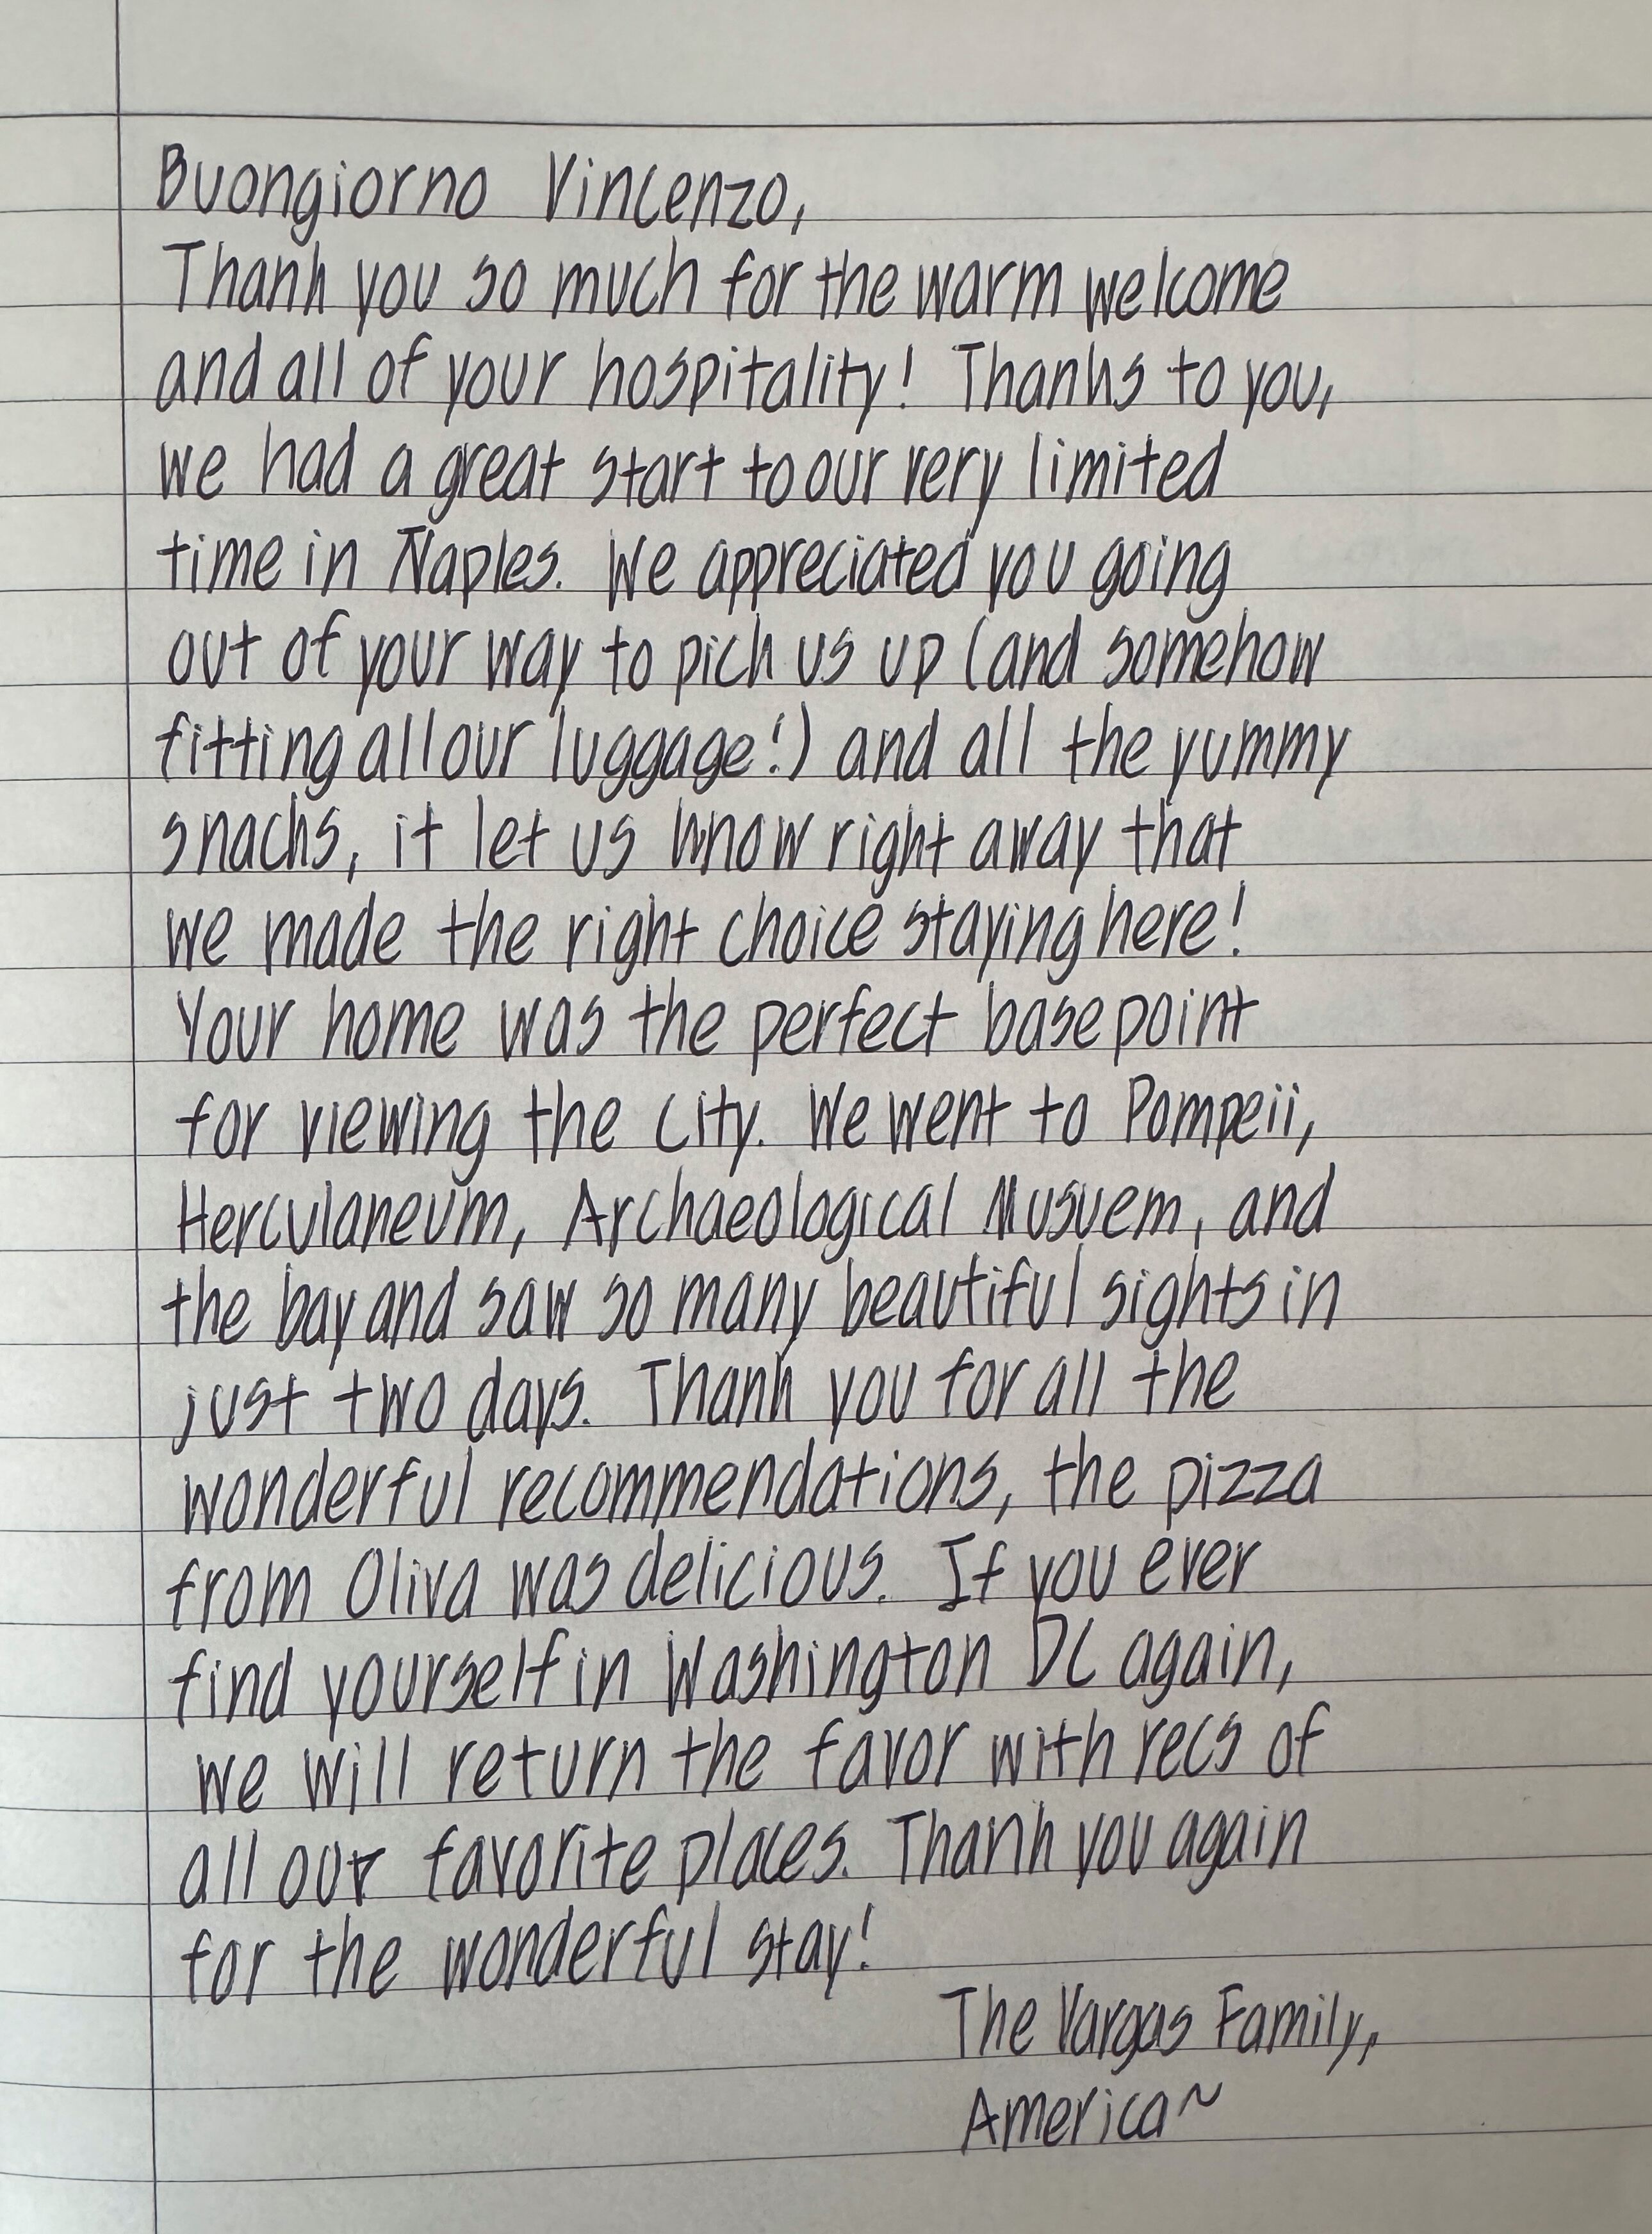 Buongiorno Vincenzo,
Thank you so much for the warm welcome
and all of your hospitality! Thanks to you,
we had a great start to our very limited
time in Naples. We appreciated you going
out of your way to pick us up (and somehow
fitting all our luggage!) and all the yummy
snacks, it let us know right away that
we made the right choice staying here!
Your home was the perfect basepoint
for viewing the city. We went to Pompeii,
Herculaneum, Archaeological Musuem, and
the bay and saw so many beautiful sights in
just two days. Thank you for all the
wonderful recommendations, the pizza
from Oliva was delicious. If you ever
find yourself in Washington DC again,
we will return the favor with recs of
all our favorite places. Thank you again
for the wonderful stay!
The Vargas Family,
America~